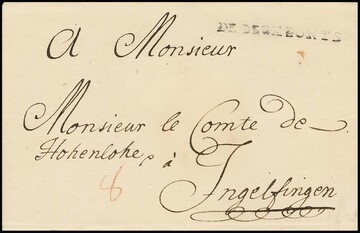 DE DEUXPONTS
A Monsieur
Monsieur le Comte de
Hohenlohe à
Ingelfingen
8